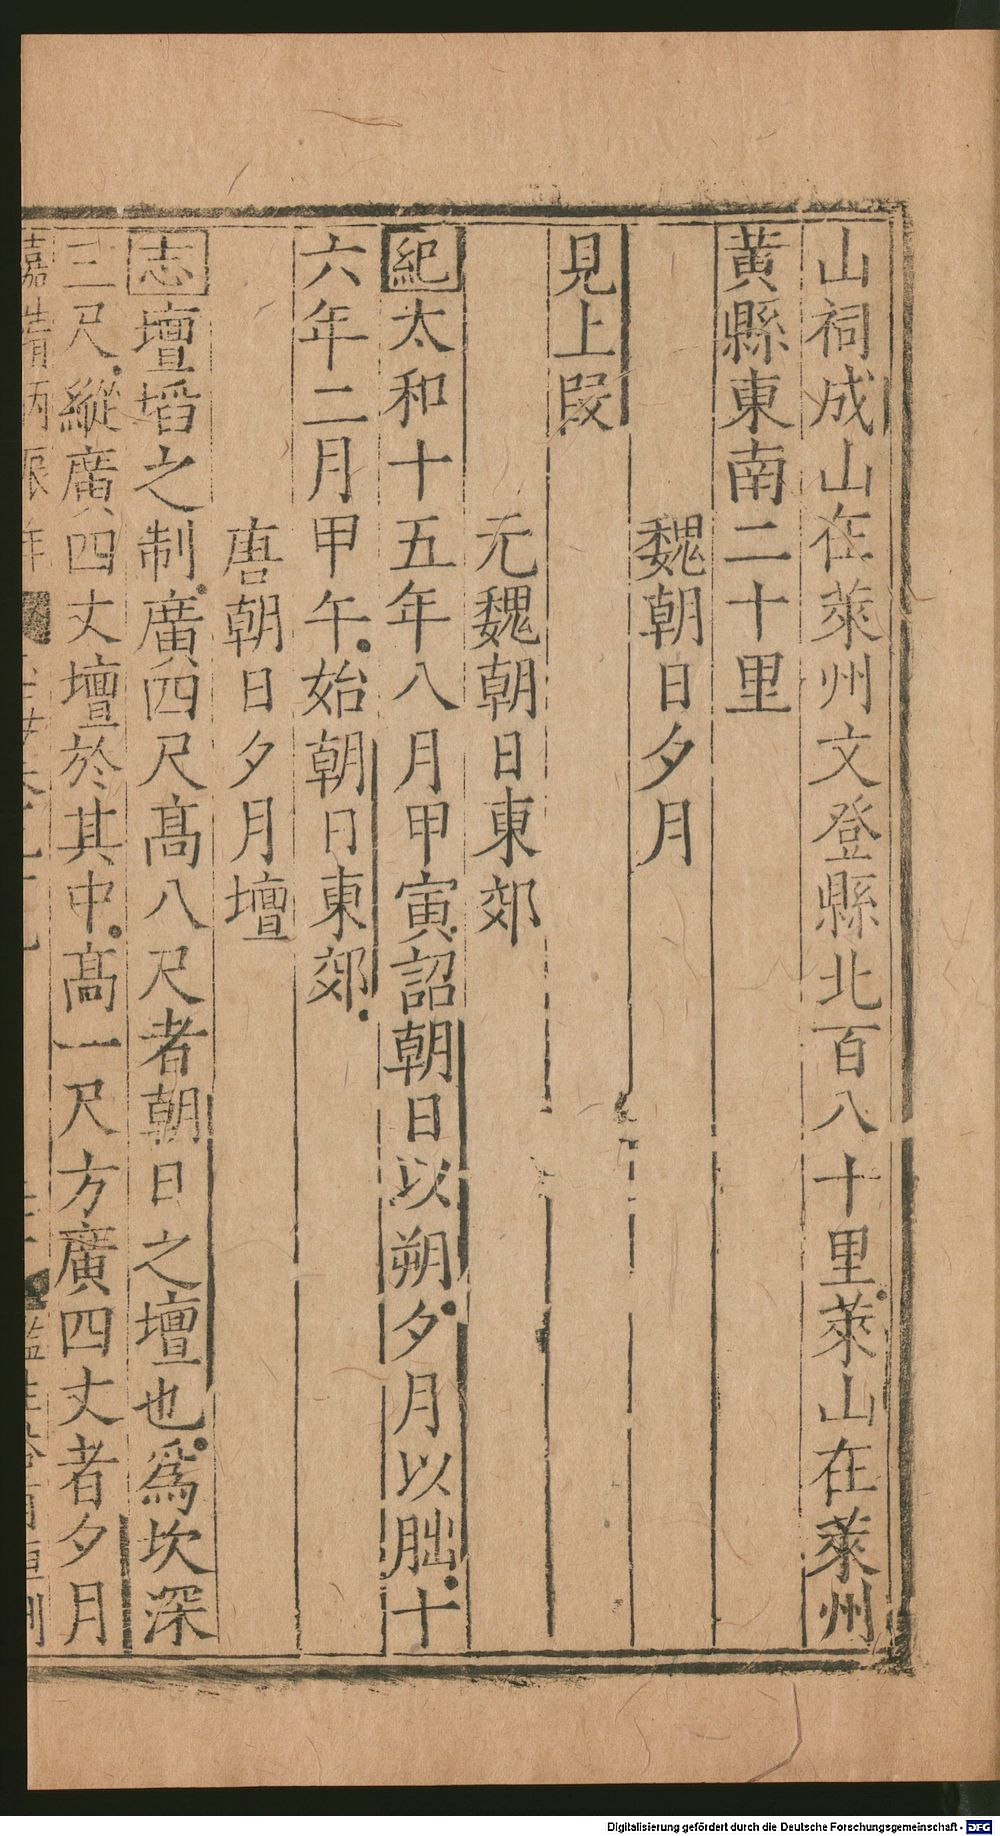 山祠成山在萊州文登縣北百八十里萊山在萊州
黃縣東南二十里
魏朝日夕月
見上段
元魏朝日東郊
紀太和十五年八月甲寅詔朝日以朔夕月以朏十
六年二月甲午始朝日東郊
唐朝日夕月壇
志壇壔之制廣四尺高八尺者朝日之壇也爲坎深
三尺縱廣四丈壇於其中高一尺方廣四丈者夕月
嘉靖丙
Digitalisierung gefördert durch die Deutsche Forschungsgemeinschaft - DFG